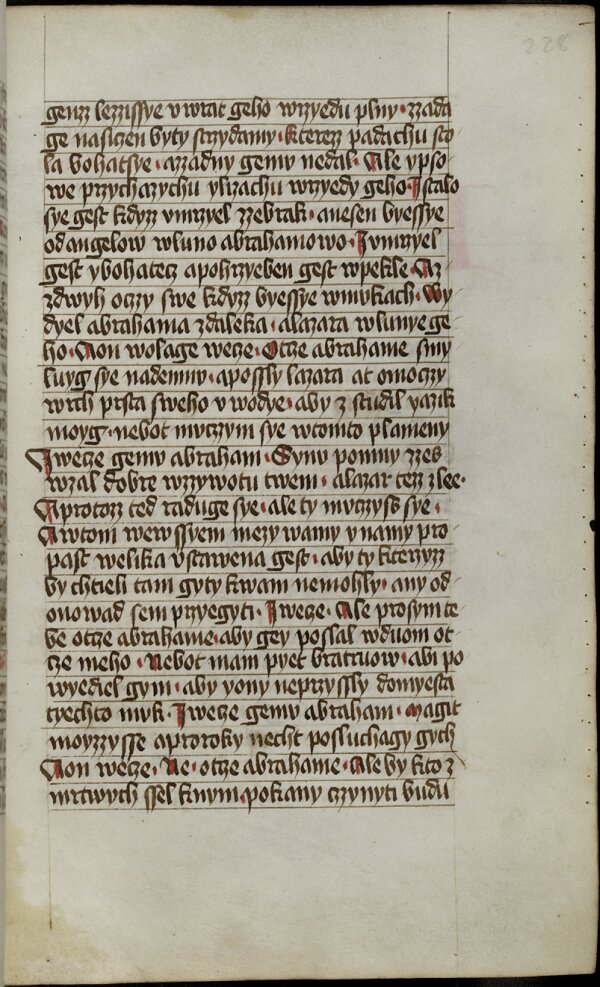 228
genz lezzissye v wrat geho wrzyedu plny · zzada
ge nasiczen byty s drzydamy · kterez padachu sto
la bohatsye · azzadny gemu nedal · Ale ypso
we przychazychu ylizachu wrzyedy geho · Istalo
sye gest kdyz vmrzyel zzebrak · anesen byessye
od angelow wluno abrahamowo · I vmrzyel
gest ybohatecz apohrzyeben gest wpekle · Az
zdwyh oczy swe kdyz byessye wmukach · Wy
dyel abrahama zdaleka · alazara wlunye ge
ho · Aon wolage wecze · Otcze abrahame smy
luyg sye nademnu · aposly lazara at omoczy
wrch prsta sweho v wodye · aby z studil yazik
moyg · nebot muczym sye wtomto plameny
Iwecze gemu abraham · Synu pomny zzes
wzal dobre wzzywotu twem · alazar tez zlee ·
Aprotoz ted raduge sye · ale ty muczyss sye ·
Awtom wewssyem mezy wamy y namy pro
past welika vstawena gest · aby ty kterzyz
by chtieli tam gyty kwam nemohly · any od
onowad sem przyegyti · Iwecze · Ale prosym te
be otcze abrahame · aby gey poslal wduom ot
cze meho · Nebot mam pyet bratruow · abi po
wyediel gym · aby yony neprzyssly domyesta
tyechto muk · Iwecze gemu abraham · Magit
moyzzysse aproroky necht posluchagy gych
Aon wecze · Ne · otcze abrahame · Ale by kto z
mrtwych ssel knym · pokany czynyti budu